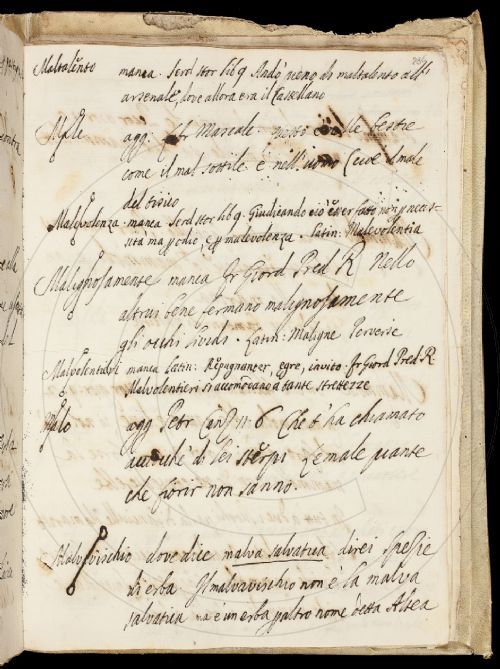 Maltalento manca. Serd stor lib 9. Andò pieno di maltalento all'
arsenale, dove allora era il Castellano
Male agg: Marcale. Bestie
come il mal sottile è nell' uomo cioè il male
del tisico
Malevolenza. manca Serd stor lib 9. Giudicando ciò esser fatto non p neces-
sità ma p odio, e p malevolenza. Latin: Malevolentia
Malignosamente manca fr Giord Pred R Nello
altrui bene fermano malignosamente
gli occhi lividi. Latin: Maligne Perverse
Malvolentieri manca Latin: Repugnanter, egre, invito. fr Giord Pred R
Malvolentieri si accomodano a tante strettezze
Malo agg Petr Canz 11. 6 Che t'ha chiamato
acciochè di lei sterpi Le male piante
che fiorir non sanno.
Malvavischio dove dice malva salvatica direi spezie
di erba Il malvavischio non è la malva
salvatica ma è un erba p altro nome detta Altea